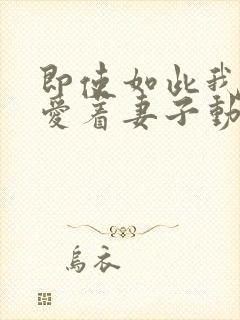 即使如此我
愛着妻子動
烏衣